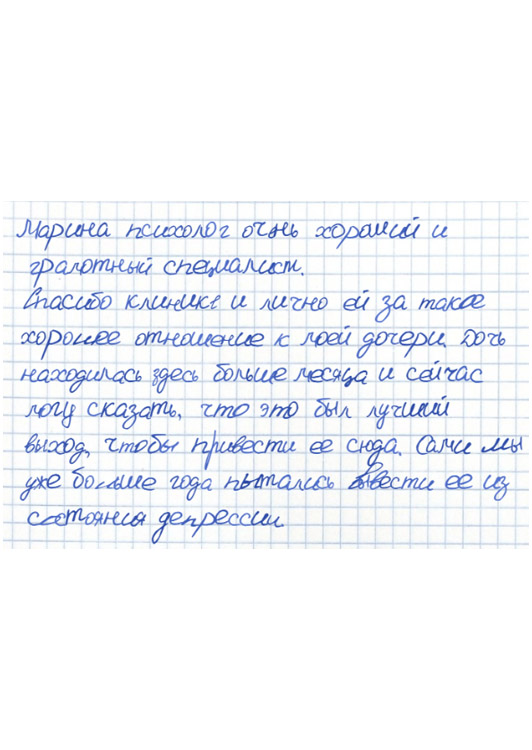 Марина психолог очень хороший и
грамотный специалист.
Спасибо клинике и лично ей за такое
хорошее отношение к моей дочери. Дочь
находилась здесь больше месяца и сейчас
могу сказать, что это был лучший
выход, чтобы привести ее сюда. Сами мы
уже больше года пытались вывести ее из
состояния депрессии.